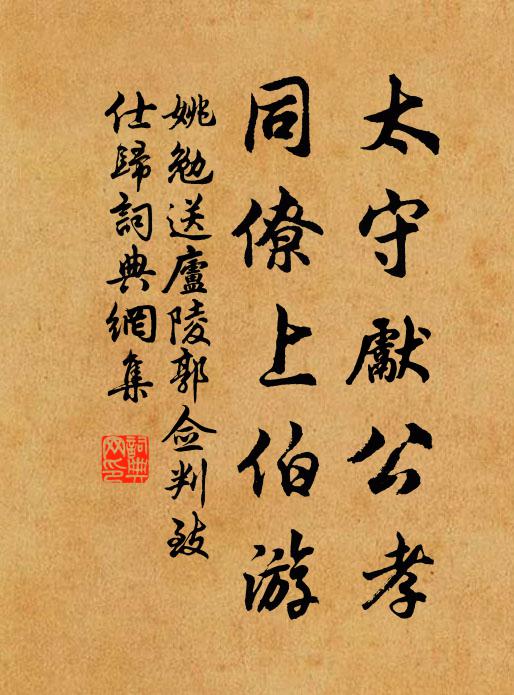 太守獻公孝
同僚上伯游
姚勉送廬陵郭僉判致
仕歸詞典網集
詞典
网印